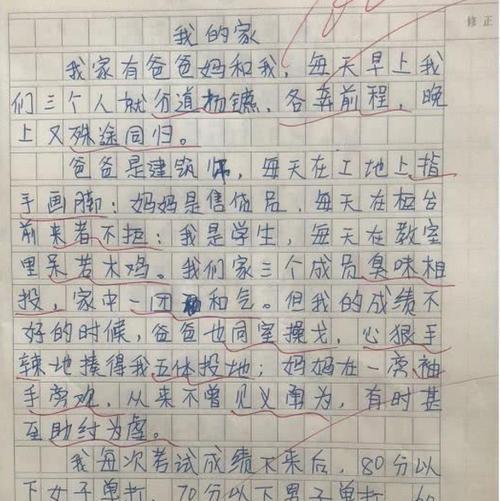 修正
我的家
我家有爸爸妈和我，每天早上我
们三个人就分道扬镳，各奔前程，晚
上又殊途同归。
爸爸是建筑师，每天在工地上指
手画脚；妈妈是售货员，每天在柜台
前来者不拒；我是学生，每天在教室
里呆若木鸡。我们家三个成员臭味相
投，家中一团和气。但我的成绩不
好的时候，爸爸也同室操戈，心狠手
辣地揍得我五体投地；妈妈在一旁袖
手旁观，从来不曾见义勇为，有时甚
至助纣为虐。
我每次考试成绩下来后，80分以
下女子单打，70分以下男子单打，60